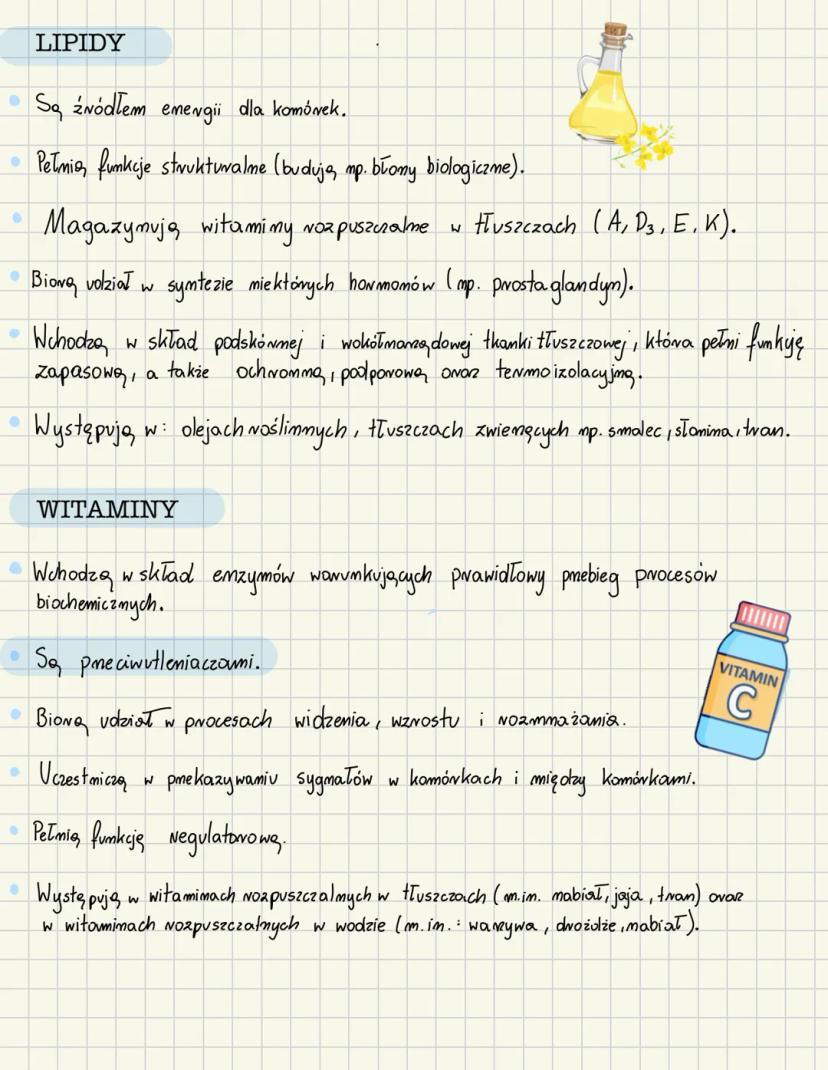 LIPIDY
Są źródłem energii dla komórek.
Pełnią funkcje strukturalne (budują np. błony biologiczne).
Magazynują witaminy rozpuszczalne w tłuszczach (A, D3, E, K).
Biorą udział w syntezie niektórych hormonów (np. prostaglandyn).
Wchodzą w skład podskórnej i wokółnarządowej tkanki tłuszczowej, która pełni funkcję
zapasową, a także ochronną, podporową oraz termoizolacyjną.
Występują w: olejach roślinnych, tłuszczach zwierzęcych np. smalec, słonina, tran.
WITAMINY
Wchodzą w skład enzymów warunkujących prawidłowy przebieg procesów
biochemicznych.
VITAMIN
C
Są przeciwutleniaczami.
Biorą udział w procesach widzenia, wzrostu i rozmnażania.
Uczestniczą w przekazywaniu sygnałów w komórkach i między komórkami.
Pełnią funkcję regulatorową.
Występują w witaminach rozpuszczalnych w tłuszczach (m.in. nabiał, jaja, tran) oraz
w witaminach rozpuszczalnych w wodzie (m.in.: warzywa, drożdże, nabiał).